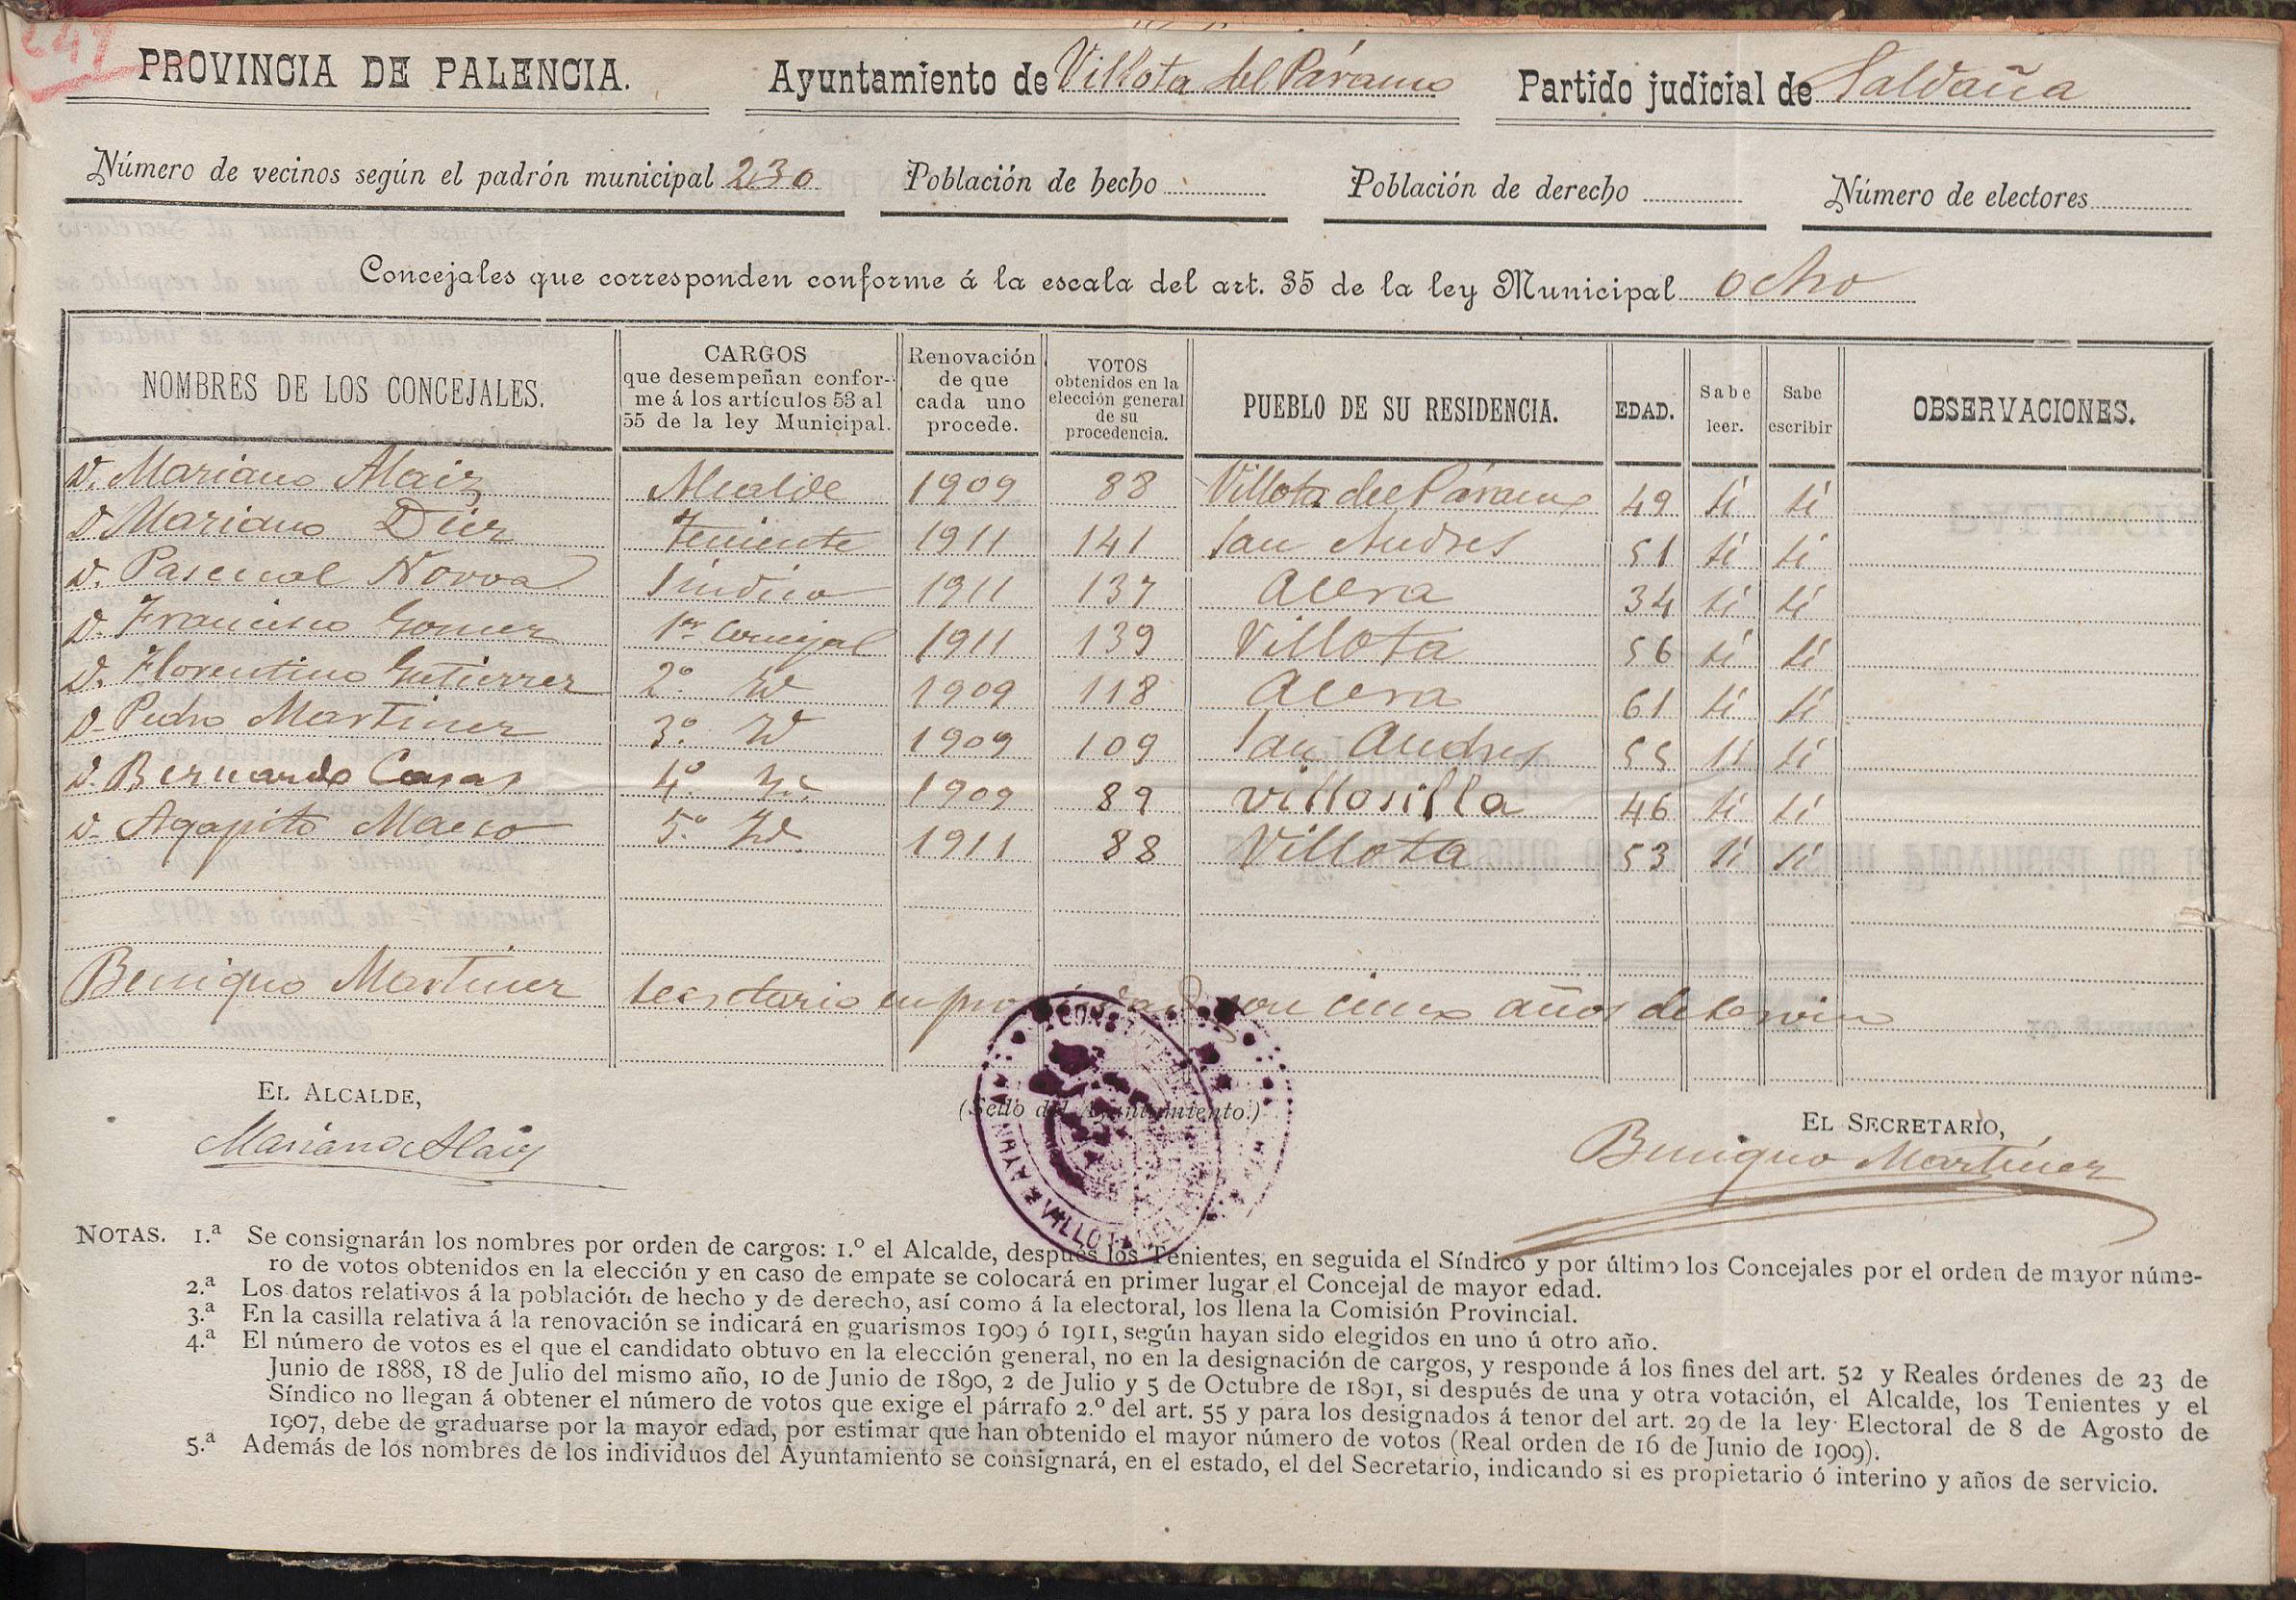 247
PROVINCIA DE PALENCIA. Ayuntamiento de Villota del Páramo Partido judicial de Saldaña
Número de vecinos según el padrón municipal 230 Población de hecho Población de derecho Número de electores
Concejales que corresponden conforme á la escala del art. 35 de la ley Municipal ocho
NOMBRES DE LOS CONCEJALES. CARGOS que desempeñan conforme á los artículos 53 al 55 de la ley Municipal. Renovación de que cada uno procede. VOTOS obtenidos en la elección general de su procedencia. PUEBLO DE SU RESIDENCIA. EDAD. Sabe leer. Sabe escribir OBSERVACIONES.
D. Mariano Alaiz Alcalde 1909 88 Villota del Páramo 49 si si
D. Mariano Diez Teniente 1911 141 San Andres 51 si si
D. Pascual Novoa Sindico 1911 137 Acera 34 si si
D. Francisco Gomez 1er Concejal 1911 139 Villota 56 si si
D. Florentino Gutierrez 2º Id 1909 118 Acera 61 si si
D. Pedro Martinez 3º Id 1909 109 San Andres 55 si si
D. Bernardo Casas 4º Id 1909 89 Villosilla 46 si si
D. Agapito Maeso 5º Id. 1911 88 Villota 53 si si
Benigno Martinez secretario en propiedad con cinco años de servicio
EL ALCALDE,
Mariano Alaiz
(Sello del Ayuntamiento.)
EL SECRETARIO,
Benigno Martínez
NOTAS. 1.ª Se consignarán los nombres por orden de cargos: 1.º el Alcalde, después los Tenientes, en seguida el Síndico y por último los Concejales por el orden de mayor núme-
ro de votos obtenidos en la elección y en caso de empate se colocará en primer lugar el Concejal de mayor edad.
2.ª Los datos relativos á la población de hecho y de derecho, así como á la electoral, los llena la Comisión Provincial.
3.ª En la casilla relativa á la renovación se indicará en guarismos 1909 ó 1911, según hayan sido elegidos en uno ú otro año.
4.ª El número de votos es el que el candidato obtuvo en la elección general, no en la designación de cargos, y responde á los fines del art. 52 y Reales órdenes de 23 de
Junio de 1888, 18 de Julio del mismo año, 10 de Junio de 1890, 2 de Julio y 5 de Octubre de 1891, si después de una y otra votación, el Alcalde, los Tenientes y el
Síndico no llegan á obtener el número de votos que exige el párrafo 2.º del art. 55 y para los designados á tenor del art. 29 de la ley Electoral de 8 de Agosto de
1907, debe de graduarse por la mayor edad, por estimar que han obtenido el mayor número de votos (Real orden de 16 de Junio de 1909).
5.ª Además de los nombres de los individuos del Ayuntamiento se consignará, en el estado, el del Secretario, indicando si es propietario ó interino y años de servicio.